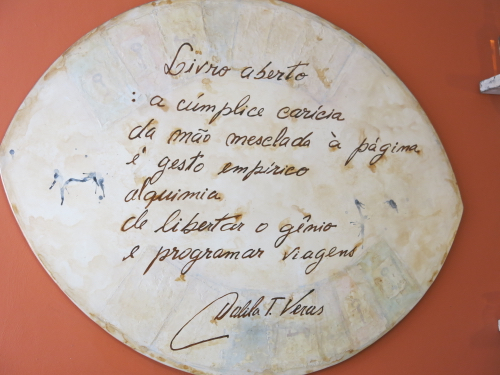 Livro aberto
: a cúmplice carícia
da mão mesclada à página
é gesto empírico
alquimia
de libertar o gênio
e programar viagens
Dalila T. Veras